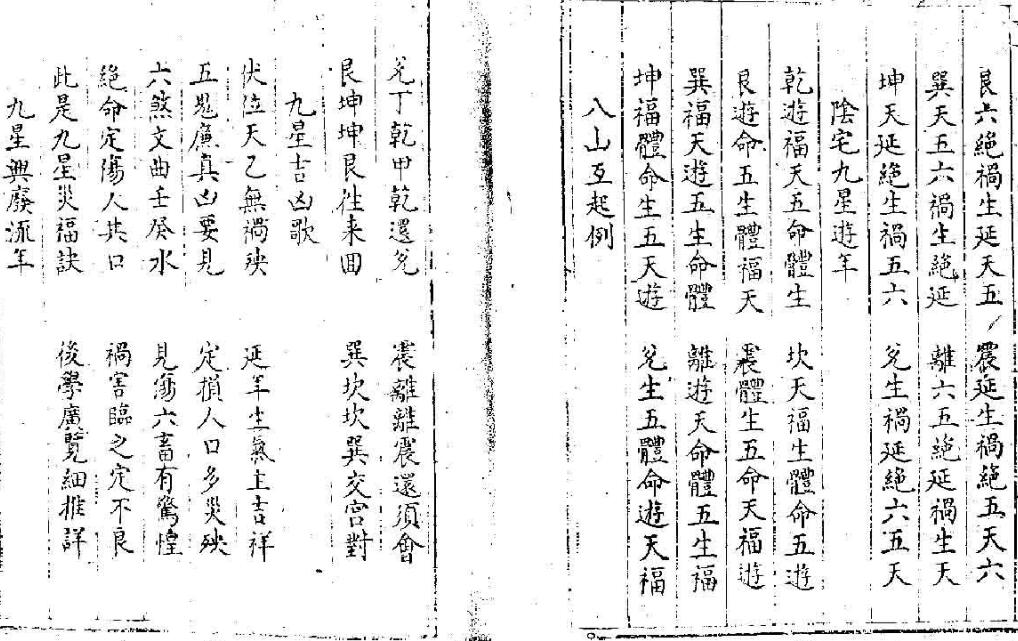 艮六絶禍生延天五 震延生禍絶五天六
巽天五六禍生絶延 離六五絶延禍生天
坤天延絶生禍五六 兊生禍延絶六五天
陰宅九星遊年
乾遊福天五命體生 坎天福生體命五遊
艮遊命五生體福天 震體生五命天福遊
巽福天遊五生命體 離遊天命體五生福
坤福體命生五天遊 兊生五體命遊天福
八山互起例
兊丁乾甲乾還兊 震離離震還須會
艮坤坤艮往来囬 巽坎坎巽交宫對
九星吉凶歌
伏位天乙無禍殃 延年生氣主吉祥
五鬼廉真凶要見 定損人口多災殃
六煞文曲壬癸水 見傷六畜有驚惶
絶命定傷人共口 禍害臨之定不良
此是九星災福訣 後學廣覽細推詳
九星興廢流年